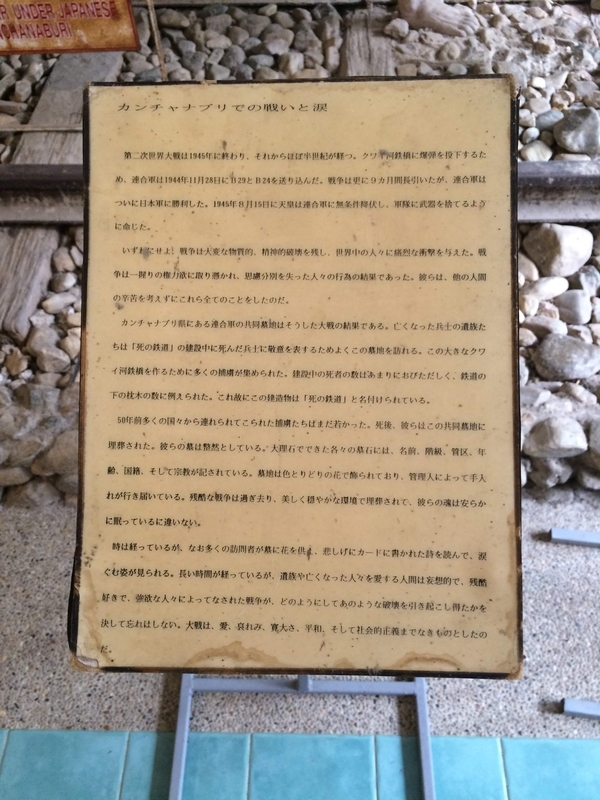 R UNDER JAPANESE
CHANABURI
カンチャナブリでの戦いと涙
第二次世界大戦は1945年に終わり、それからほぼ半世紀が経つ。クワイ河鉄橋に爆弾を投下するた
め、連合軍は1944年11月28日にB29とB24を送り込んだ。戦争は更に9カ月間長引いたが、連合軍は
ついに日本軍に勝利した。1945年8月15日に天皇は連合軍に無条件降伏し、軍隊に武器を捨てるよう
に命じた。
いずれにせよ、戦争は大変な物質的、精神的破壊を残し、世界中の人々に痛烈な衝撃を与えた。戦
争は一握りの権力欲に取り憑かれ、思慮分別を失った人々の行為の結果であった。彼らは、他の人間
の辛苦を考えずにこれら全てのことをしたのだ。
カンチャナブリ県にある連合軍の共同墓地はそうした大戦の結果である。亡くなった兵士の遺族た
ちは「死の鉄道」の建設中に死んだ兵士に敬意を表するためよくこの墓地を訪れる。この大きなクワ
イ河鉄橋を作るために多くの捕虜が集められた。建設中の死者の数はあまりにおびただしく、鉄道の
下の枕木の数に例えられた。これ故にこの建造物は「死の鉄道」と名付けられている。
50年前多くの国々から連れられてこられた捕虜たちはまだ若かった。死後、彼らはこの共同墓地に
埋葬された。彼らの墓は整然としている。大理石でできた各々の墓石には、名前、階級、管区、年
齢、国籍、そして宗教が記されている。墓地は色とりどりの花で飾られており、管理人によって手入
れが行き届いている。残酷な戦争は過ぎ去り、美しく穏やかな環境で埋葬されて、彼らの魂は安らか
に眠っているに違いない。
時は経っているが、なお多くの訪問者が墓に花を供え、悲しげにカードに書かれた詩を読んで、涙
ぐむ姿が見られる。長い時間が経っているが、遺族や亡くなった人々を愛する人間は妄想的で、残酷
好きで、強欲な人々によってなされた戦争が、どのようにしてあのような破壊を引き起こし得たかを
決して忘れはしない。大戦は、愛、哀れみ、寛大さ、平和、そして社会的正義までなきものとしたの
だ。